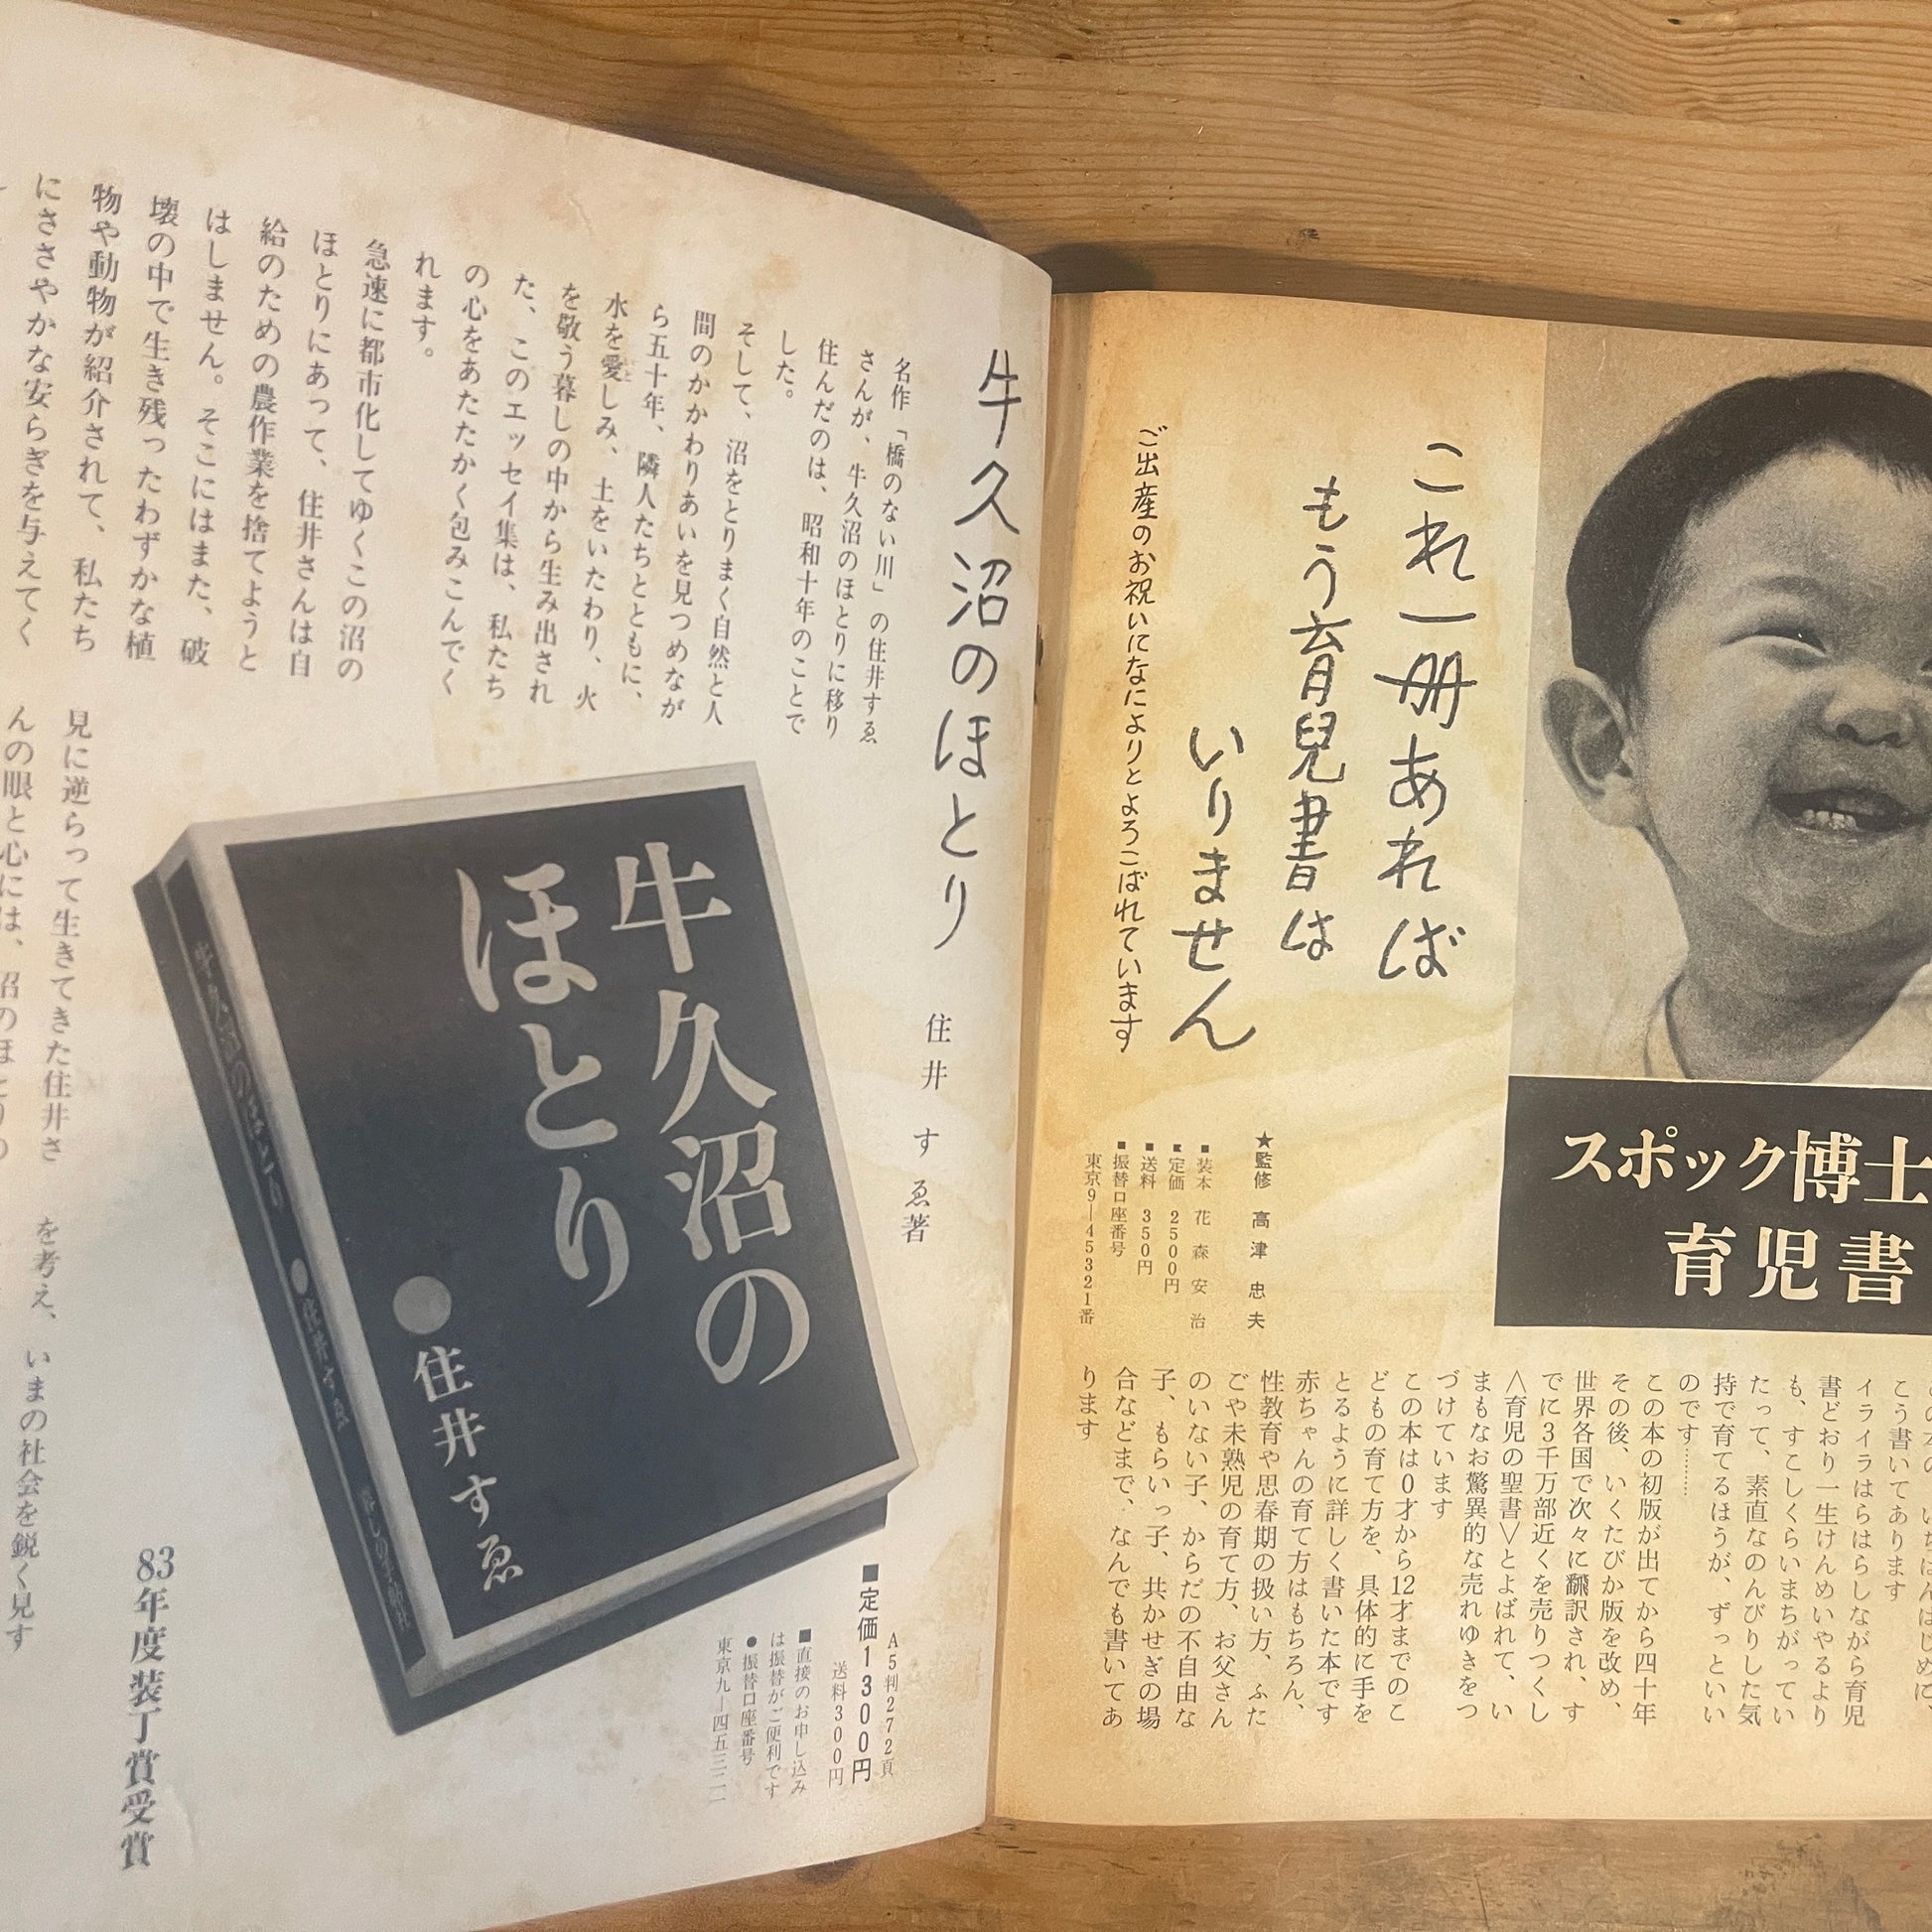 これ一冊あれば
もう育児書は
いりません
ご出産のお祝いになによりとよろこばれています
スポック博士
育児書
★監修 高津忠夫
■装本 花森安治
■定価 2500円
■送料 350円
■振替口座番号
東京9—45321番
こう書いてあります
イライラはらはらしながら育児
書どおり一生けんめいやるより
も、すこしくらいまちがってい
たって、素直なのんびりした気
持で育てるほうが、ずっといい
のです………
この本の初版が出てから四十年
その後、いくたびか版を改め、
世界各国で次々に飜訳され、す
でに3千万部近くを売りつくし
〈育児の聖書〉とよばれて、い
まもなお驚異的な売れゆきをつ
づけています
この本は0才から12才までのこ
どもの育て方を、具体的に手を
とるように詳しく書いた本です
赤ちゃんの育て方はもちろん、
性教育や思春期の扱い方、ふた
ごや未熟児の育て方、お父さん
のいない子、からだの不自由な
子、もらいっ子、共かせぎの場
合などまで、なんでも書いてあ
ります
牛久沼のほとり
住井すゑ著
名作「橋のない川」の住井すゑ
さんが、牛久沼のほとりに移り
住んだのは、昭和十年のことで
した。
そして、沼をとりまく自然と人
間のかかわりあいを見つめなが
ら五十年、隣人たちとともに、
水を愛しみ、土をいたわり、火
を敬う暮しの中から生み出され
た、このエッセイ集は、私たち
の心をあたたかく包みこんでく
れます。
急速に都市化してゆくこの沼の
ほとりにあって、住井さんは自
給のための農作業を捨てようと
はしません。そこにはまた、破
壊の中で生き残ったわずかな植
物や動物が紹介されて、私たち
にささやかな安らぎを与えてく
見に逆らって生きてきた住井さ
んの眼と心には、沼のほとりの
を考え、いまの社会を鋭く見す
牛久沼の
ほとり
●住井すゑ
牛久沼のほとり ●住井すゑ 暮しの手帖社
A5判272頁
■定価1300円
送料300円
■直接のお申し込み
は振替がご便利です
●振替口座番号
東京九—四五三二一
83年度装丁賞受賞